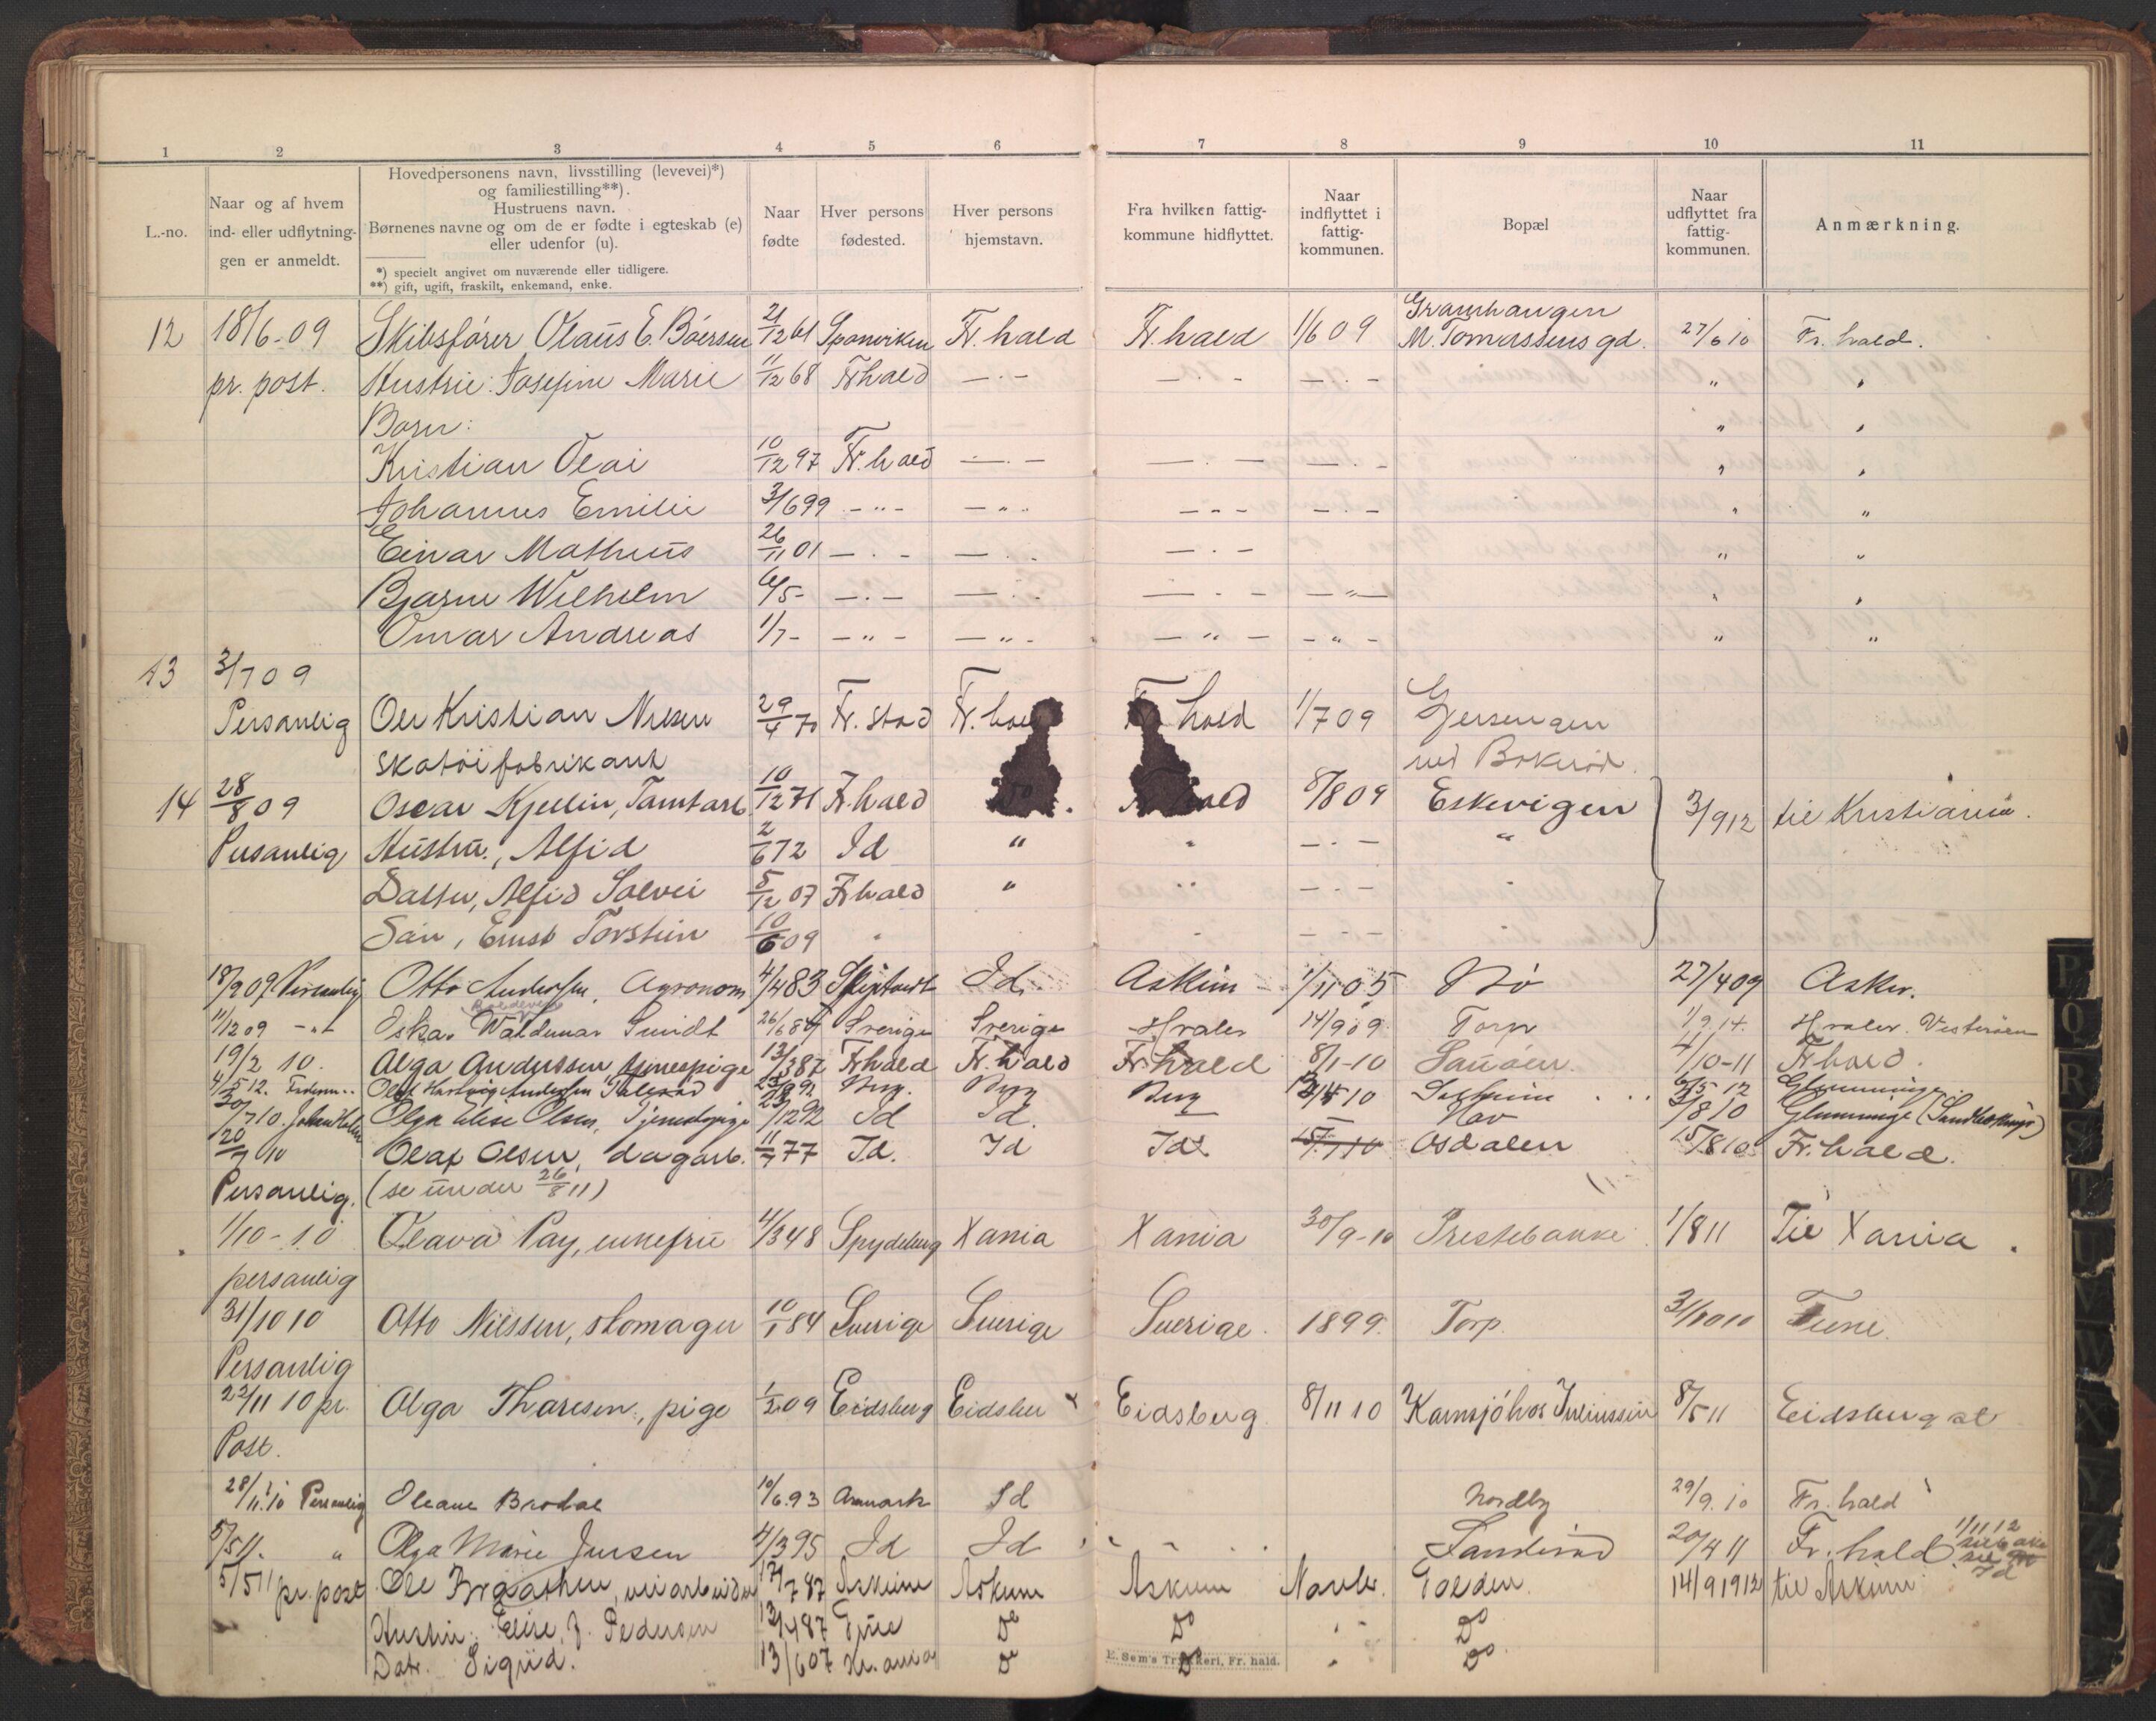 1 2 3 4 5 6 7 8 9 10 11
L.-no.
Naar og af hvem
ind- eller udflytnin-
gen er anmeldt.
Hovedpersonens navn, livsstilling (levevei)*)
og familiestilling**).
Hustruens navn.
Børnenes navne og om de er fødte i egteskab (e)
eller udenfor (u).
*) specielt angivet om nuværende eller tidligere.
**) gift, ugift, fraskilt, enkemand, enke.
Naar
fødte
Hver persons
fødested.
Hver persons
hjemstavn.
Fra hvilken fattig-
kommune hidflyttet.
Naar
indflyttet i
fattig-
kommunen.
Bopæl
Naar
udflyttet fra
fattig-
kommunen.
Anmærkning.
12 18/6-09 Skibsfører Olaus E. 21/12 61 Sponviken Fr.hald Fr.hald 1/6 09 M. Tomassens gd. 27/6 10 Fr. hald.
pr. post. Hustru: Josefine Marie 11/12 68 Fr hald — . — — . — — . — " "
Børn: " "
Kristian Olai 10/12 97 Fr. hald — . — — . — — . — " "
Johannes Emilie 3/6 99 — " — — " — — — — . — " "
Einar Mathæus 26/11 01 — . — — . — — . — " "
Bjarne Wilhelm 6/5- — . — — . — — . — — " — " "
Omar Andreas 1/7- — " — — " — — " — — " — " "
13 3/7 09
Personlig Ole Kristian Nilsen 29/4 70 Fr. stad Fr. hald 1/7 09
skotøifabrikant ved Bokerød
14 28/8 09 Oscar Kjellin, Tomtarb. 10/12 71 Fr.hald hald 8/8 09 Eskevigen 3/9 12 til Kristiania.
Personlig Hustru, Alfid 2/6 72 Id " " — . — "
Datter, Alfid Solvei 5/12 07 Fr hald " " — . — "
Søn, Ernst Torstein 10/6 09 " " — . —
18/9 07 Personlig Otto Andersen, Agronom 4/4 83 Id. Askim 1/11 05 Bø 27/4 09 Asker.
11/12 09 Oskar Waldemar Smidt Sverige Sverige Hvaler 14/9 09 Torp 1/9 14. Hvaler.
19/2 10. Olga Anderssen tjenespige 13/3 87 Fr hald Fr. hald Fr hald 8/1-10 4/10-11 Fr hald.
4/5 12. Olaf Hartvig Andersen Berg. Berg Berg Glemminge.
30/7 10. Olga Elise Olsen, Tjenestepige Id Id. Hov 8 10 Glemminge
20/7 10 Olaf Olsen, dagarb. 11/7 77 Id. Id Id 15/7 10 Osdalen 15/8 10 Fr. hald.
Personlig. (se under 26/8 11)
1/10-10 Olava Pay, enkefru 4/3 48 Spydeberg Xania Xania 30/9-10 Prestebakke 1/8 11 Til Xania.
personlig
31/10 10 Otto Nilssen, skomager 10/1 84 Sverige Sverige Sverige. 1899. Torp. 31/10 10 Tune.
Personlig
22/11 10 pr. Olga Thoresen, pige 1/2 09 Eidsberg Eidsber Eidsberg 8/11 10 Kornsjø hos Juliussen 8/5 11 Eidsberg st
Post.
28/11 10 Personlig Oleane Brodal 10/6 93 Id Nordby 29/9. 10 Fr. hald
5/5 11. " Olga Marie Jensen 4/3 95 Id Id Sanderød 20/4 11 Fr. hald 1/11 12
Id
5/5 11 pr. post Ole 7 87 Askim Askim Askim Novbr. Folden. 14/9 1912 til Askim
Hustru: Elise J. Pedersen 4 87 Do Do " Do
Datr. Sigrid. 13/6 07 Kr.ania Do Do " Do
E. Sem's Trykkeri, Fr. hald.
P
Q
R
S
T
U
V
W
X
Y
Z